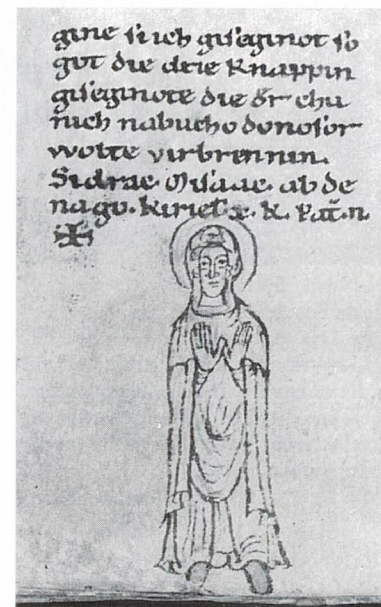 gine si ich giseginot so
got die drie knappin
giseginote die der chu
nich nabuchodonosor
wolte virbrennin.
Sidrac. Misaac. abde
nago. kiriel. x. k. pat. n.